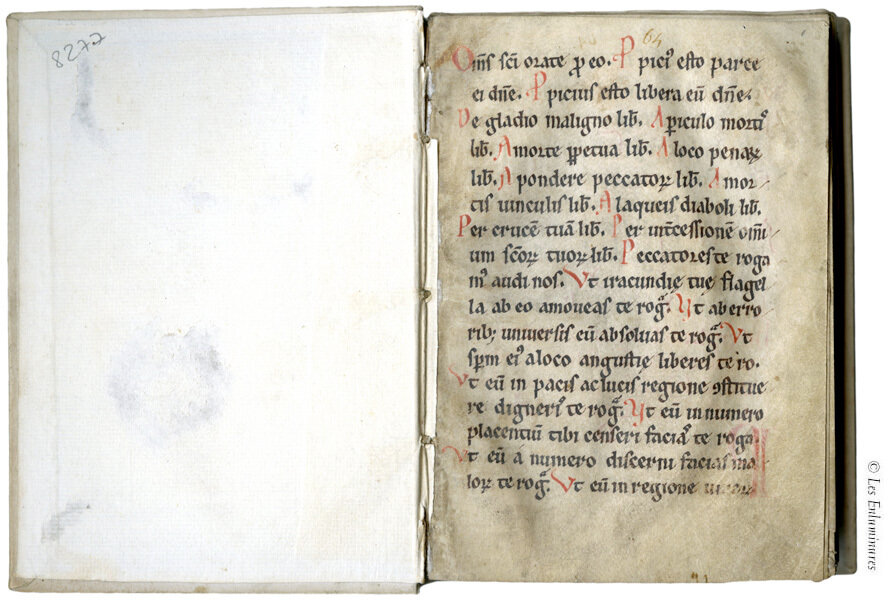 8277
64
Oms̄ sc̄i orate ꝓ eo. P picĩ esto parce
ei dn̄e. P picius esto libera eū dn̄e.
De gladio maligno lib̄. A piculo mortꝰ
lib̄. A morte ꝑpetua lib̄. A loco penaꝝ
lib̄. A pondere peccatoꝝ lib̄. A mor
tis uinculis lib̄. A laqueis diaboli lib̄.
Per crucem̄ tuā lib̄. Per int̄cessionē om̄i
um sc̄oꝝ tuoꝝ lib̄. Peccatores te roga
mꝰ audi nos. Vt iracundię tue flagel
la ab eo amoueas te rog̃. Vt ab erro
ribꝫ uniuersis eū absoluas te rog̃. Vt
sp̄m eiꝰ a loco angustię liberes te ro.
Vt eū in pacis ac lucis regione ꝯstitue
re digneriꝰ te rog̃. Vt eū in numero
placentiū tibi censeri facias te roga.
Vt eū a numero discerni facias ma
loꝝ te rog̃. Vt eū in regione
© Les Enluminures